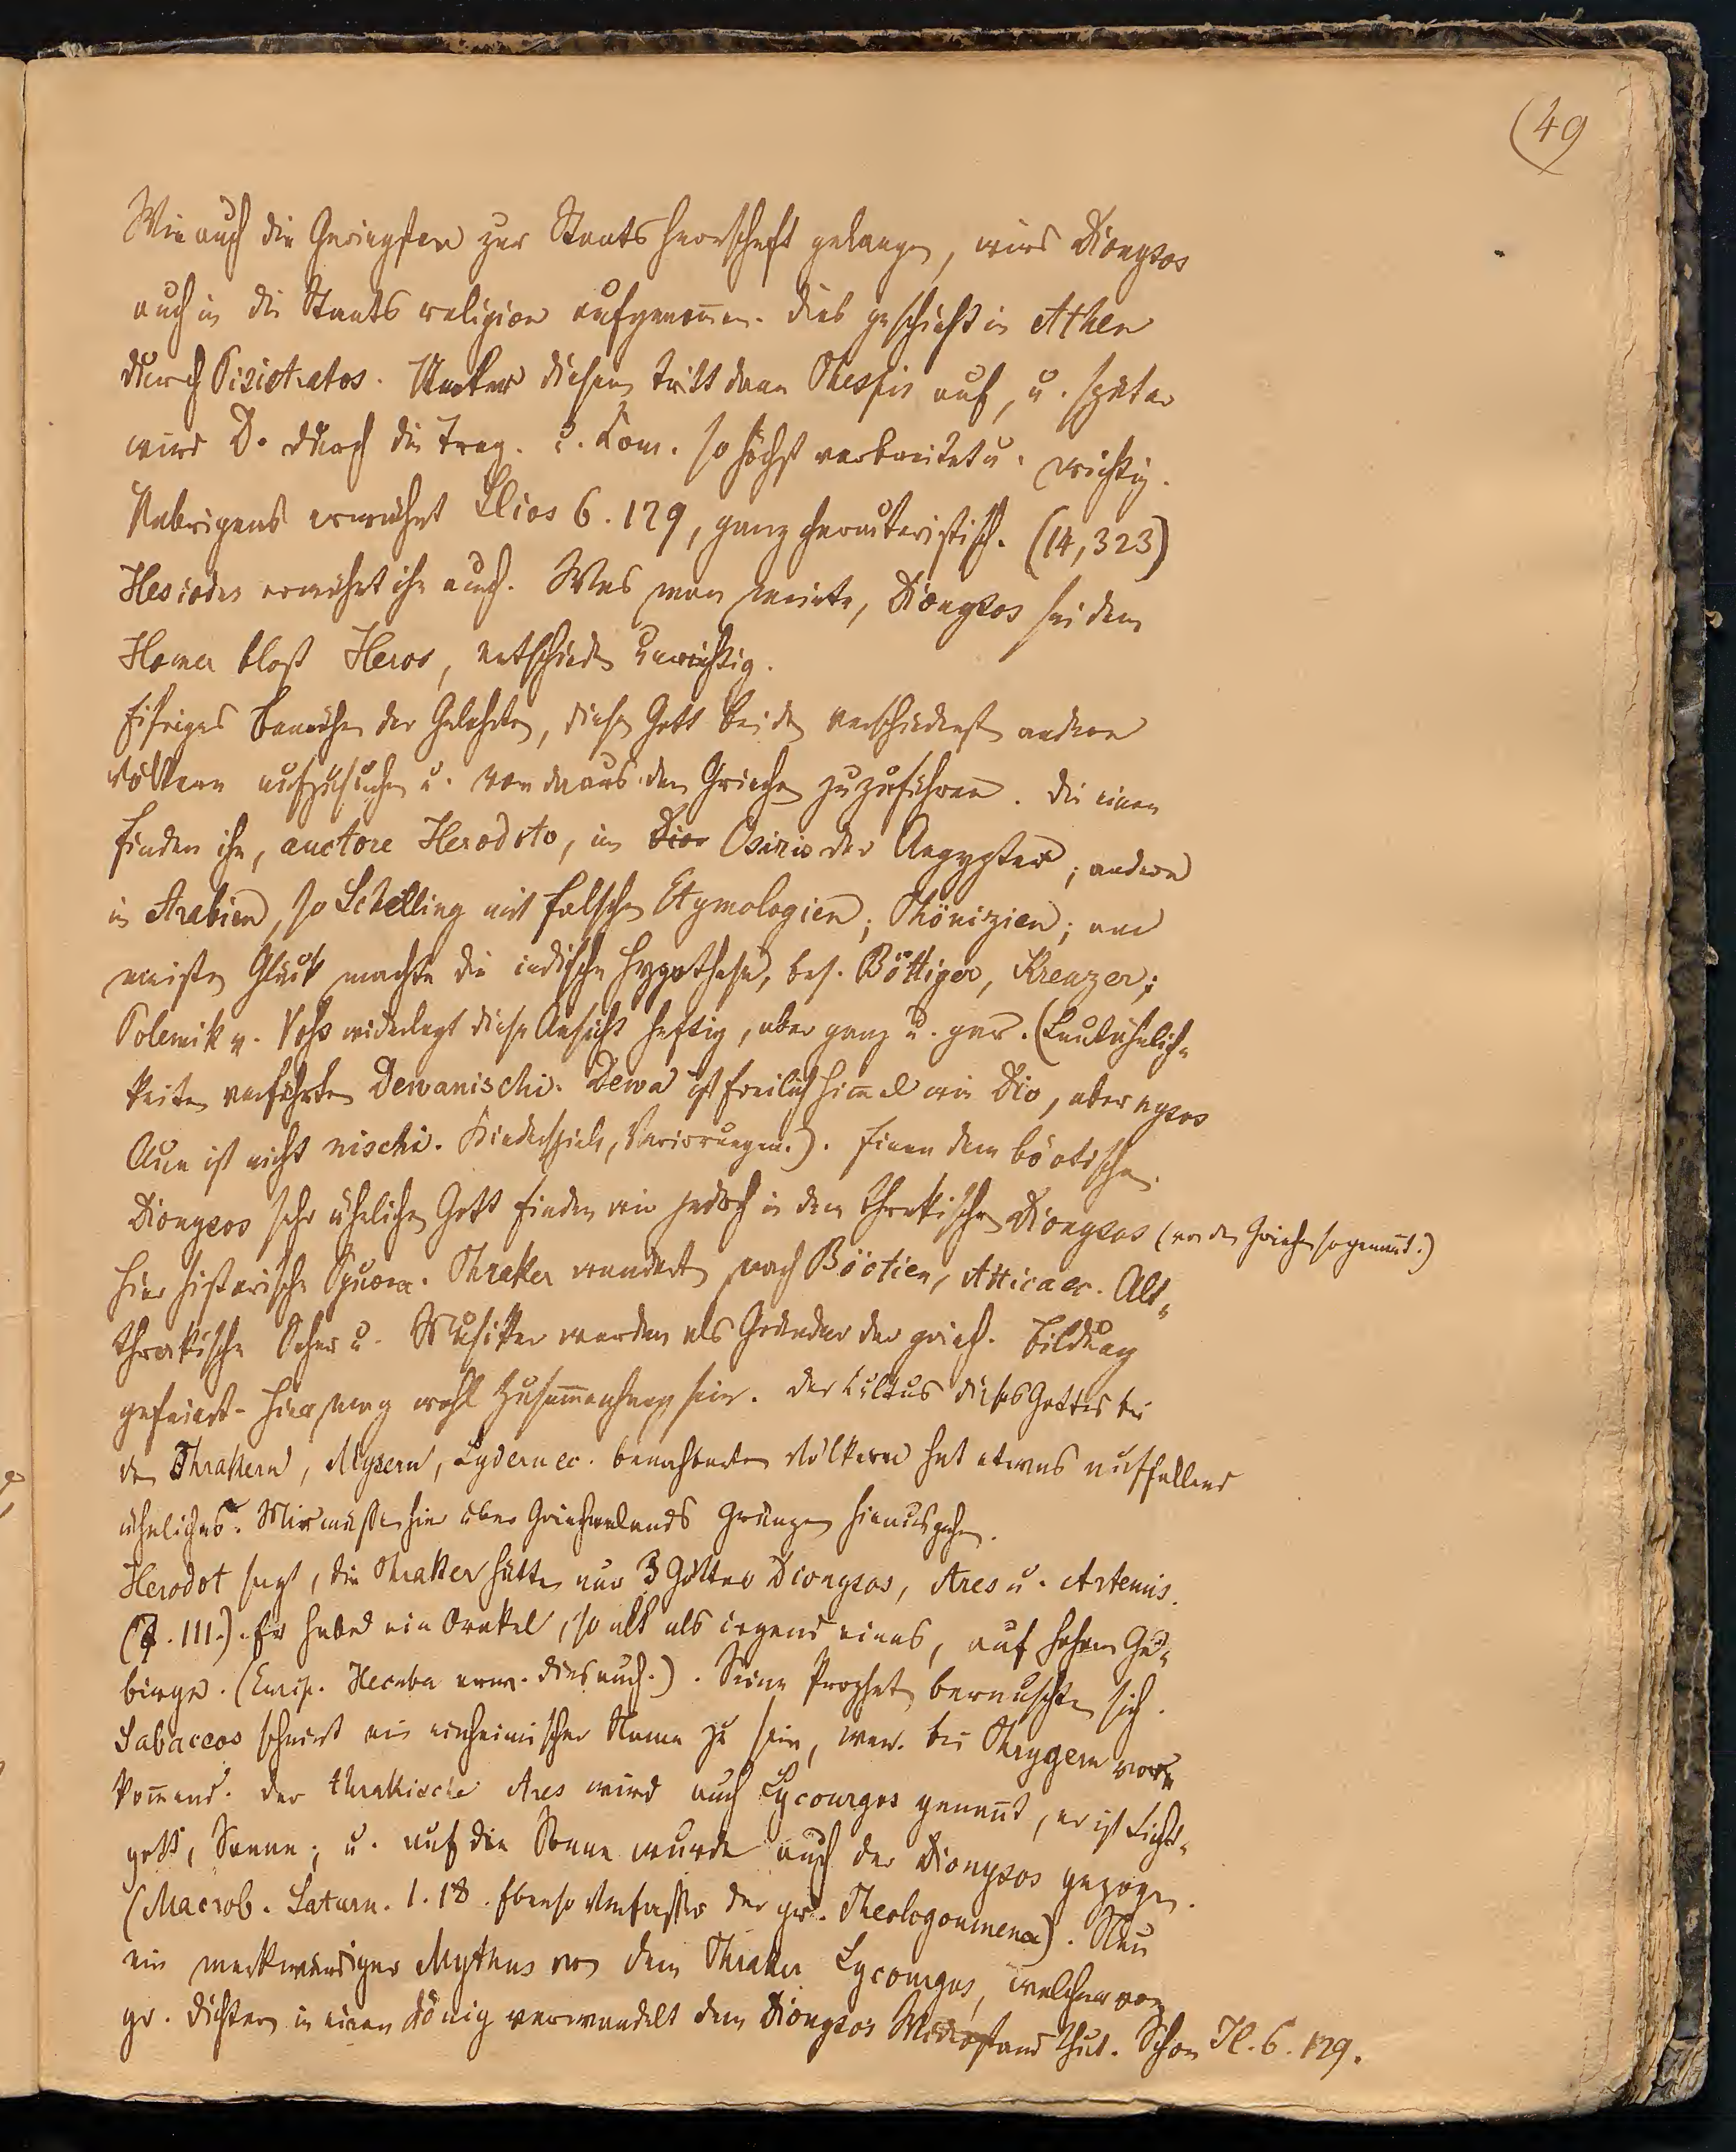 (49
Wie auch die Geringsten zur Staatsherrschaft gelangen, wird Dionysos
auch in die Staatsreligion aufgenom̄en. Dies geschieht in Athen
durch Pisistratos. Unter diesem tritt dann Thespis auf, u. später
wird D. durch die Trag. u. Kom. so höchst verbreitet u. wichtig.
Uebrigens erwähnt Ilios 6. 129, ganz charakteristisch. (14, 323)
Hesiodos erwähnt ihn auch. Was man meinte, Dionysos sei dem
Homer bloß Heros, entschieden unrichtig.
Eifriges Bemühen der Gelehrten, diesen Gott bei den verschiedensten andern
Völkern aufzusuchen u. von da aus den Griechen zuzuführen. Die einen
finden ihn, auctore Herodoto, im Osiris der Aegypter; andere
in Arabien, so Schelling mit falschen Etymologien; Phönizien; am
meisten Glück machte die indische Hypothese, bes. Böttiger, Kreuzer;
Polemik v. Voss widerlegt diese Ansicht heftig, aber ganz u. gar. (Lautähnlich-
keiten verführten Dewanischi. Dewa ist freilich Him̄el wie Dio, aber nysos
ist nicht nischi. Kinderspiele, Verirrungen.). Einen dem böotischen
Dionysos sehr ähnlichen Gott finden wir jedoch in dem thrakischen Dionysos (von den Griechen so genan̄t.)
Hier historische Spuren. Thraker wandert nach Böotien, Attica ec. Alt-
thrakische Seher u. Musiker werden als Gründer der griech. Bildung
gefeiert. Hier mag wohl Zusam̄enhang sein. Der Kultus dieses Gottes bei
den Thrakern, Mysern, Lydern ec. benachbarten Völkern hat etwas auffallend
ähnliches. Wir müssen hier über Griechenlands Gränzen hinausgehen.
Herodot sagt, die Thraker hätten nur 3 Götter Dionysos, Ares u. Artemis.
(7. 111.). Er habe ein Orakel, so alt als irgend eines, auf hohem Ge-
birge. (Eurip. Hecuba erw. dies auch.). Seine Propheten berauschten sich.
Sabaceos scheint ein einheimischer Name zu sein, bei Phrygern vor-
kom̄end. Der thrakische Ares wird auch Lycourgos genan̄t, er ist Licht-
gott, Sonne; u. auf die Sonne wurde auch der Dionysos gezogen.
(Macrob. Saturn. 1. 18. Ebenso Verfasser der gr. Theologoumena). Nun
ein merkwürdiger Mythus von dem Thraker Lycourgos, welcher von
gr. Dichtern in einen König verwandelt dem Dionysos Widerstand thut. Schon Il. 6. 129.